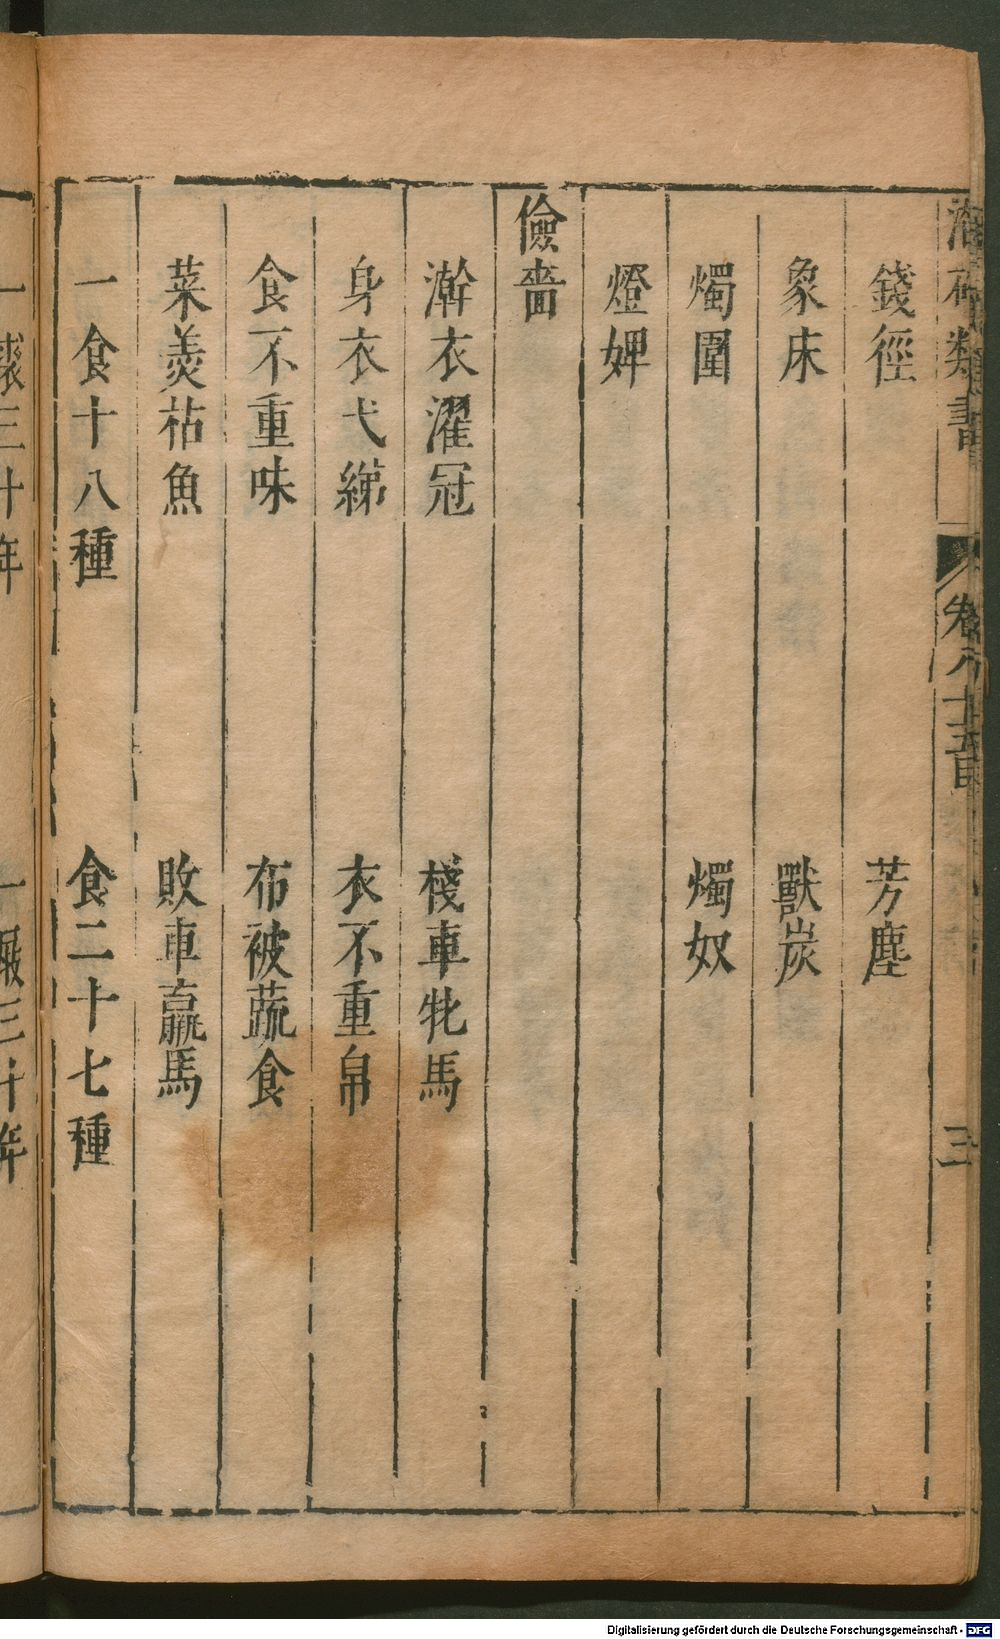 類書 卷八十五目 三
錢徑 芳塵
象床 獸炭
燭圍 燭奴
燈婢
儉嗇
澣衣濯冠 棧車牝馬
身衣弋綈 衣不重帛
食不重味 布被蔬食
菜羹枯魚 敗車羸馬
一食十八種 食二十七種
一裘三十年 三十年
Digitalisierung gefördert durch die Deutsche Forschungsgemeinschaft - DFG